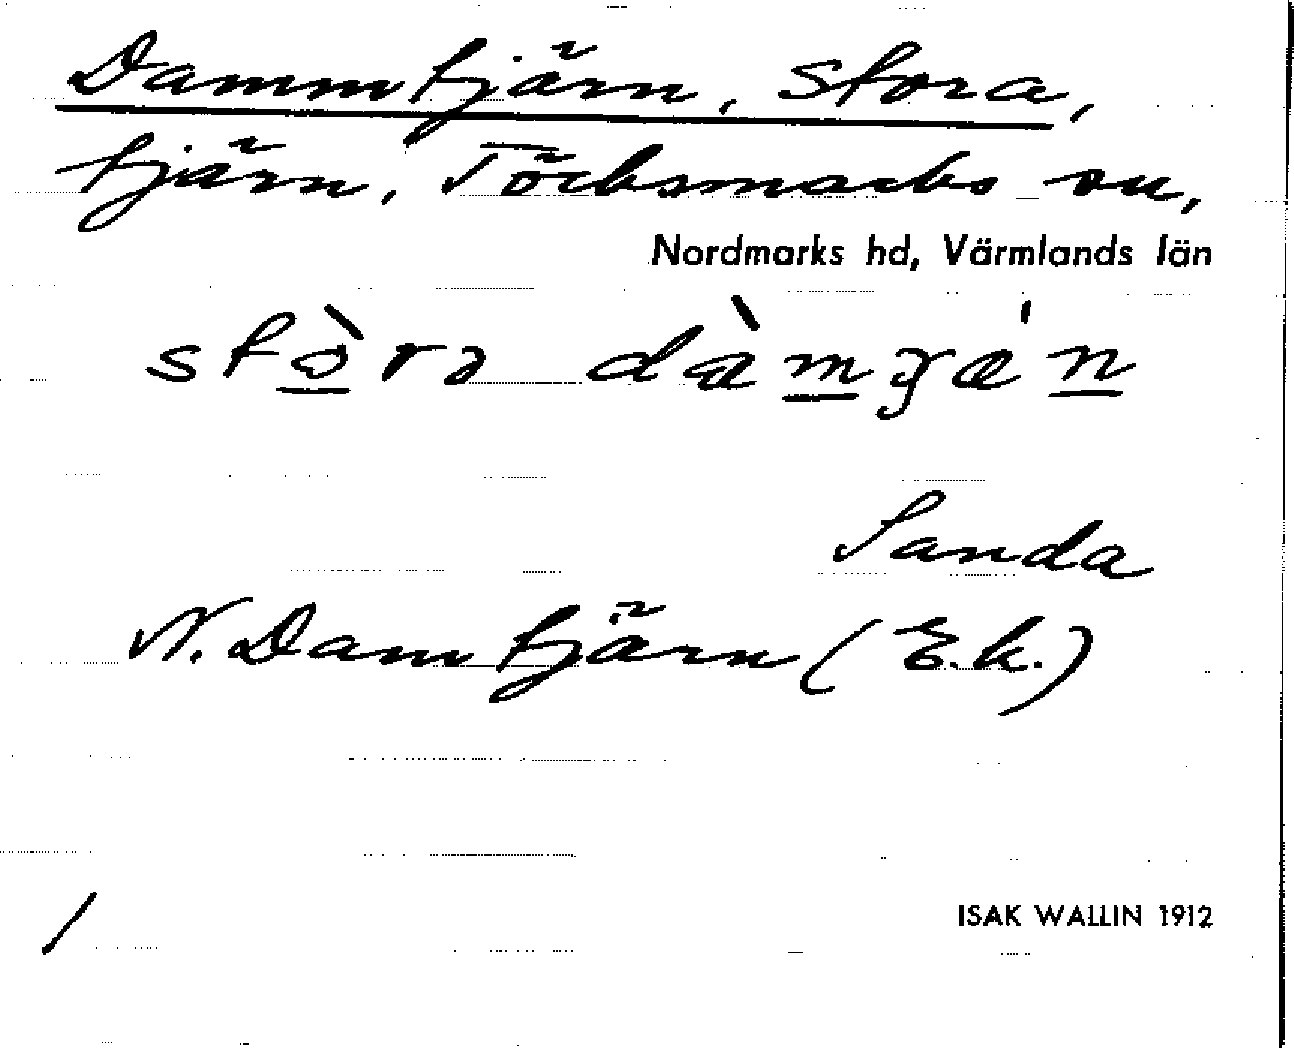 Dammtjärn, Stora,
tjärn, Töcksmarks sn,
Nordmarks hd, Värmlands län
Sanda
N. Damtjärn (Ek.)
/
ISAK WALLIN 1912